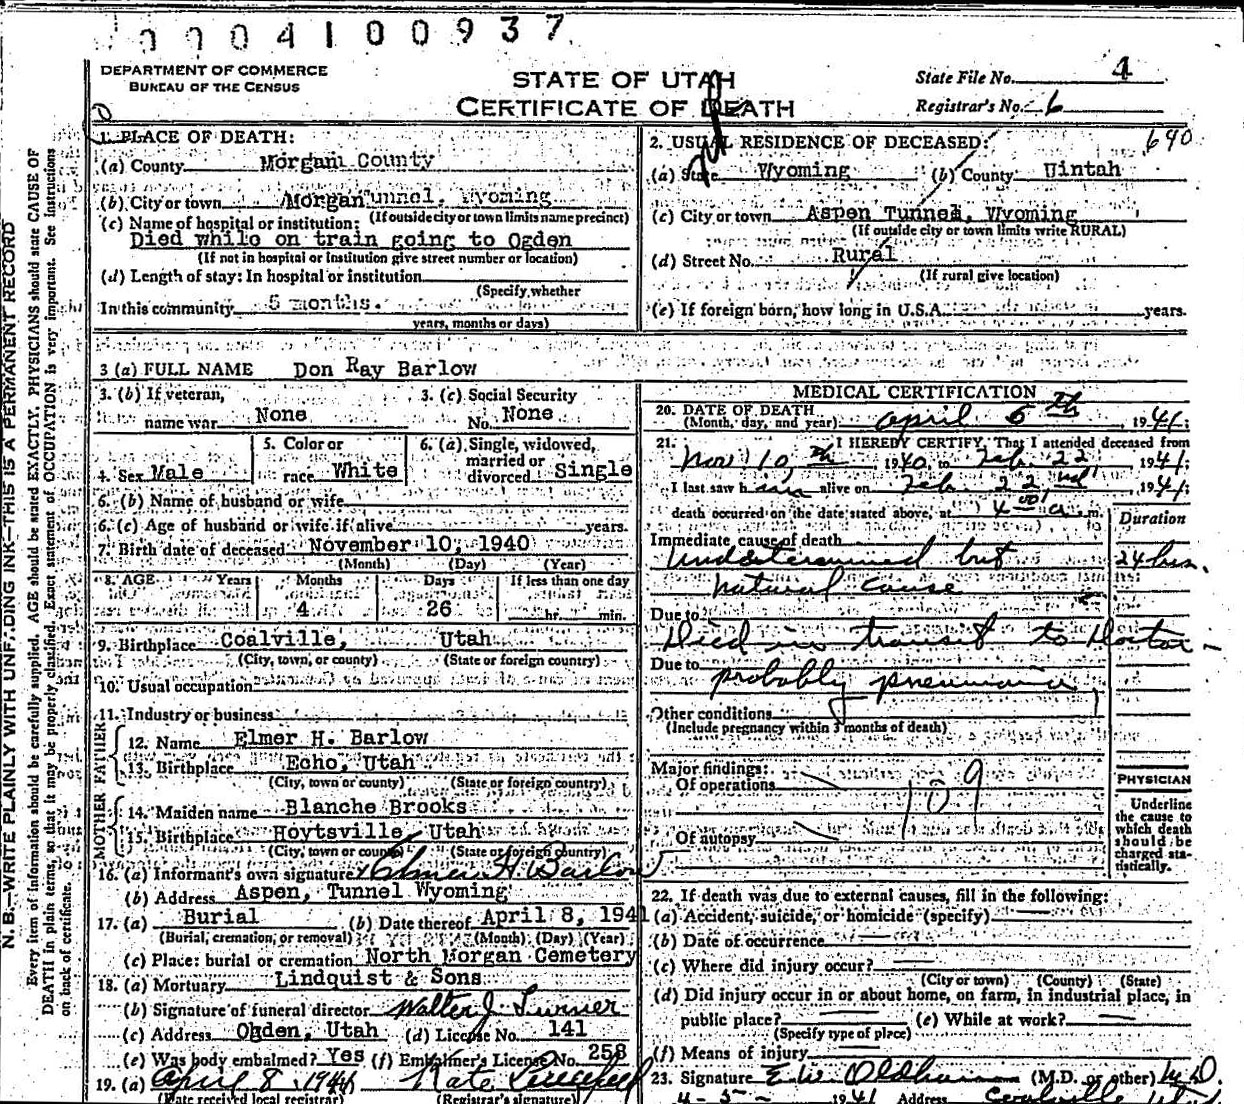 0004100937
DEPARTMENT OF COMMERCE
BUREAU OF THE CENSUS
STATE OF UTAH
CERTIFICATE OF DEATH
State File No. 4
Registrar's No. 6
1. PLACE OF DEATH:
(a) County Morgan County
(b) City or town Morgan Tunnel, Wyoming
(If outside city or town limits name precinct)
(c) Name of hospital or institution:
Died while on train going to Ogden
(If not in hospital or institution give street number or location)
(d) Length of stay: In hospital or institution
(Specify whether
In this community 5 months.
years, months or days)
2. USUAL RESIDENCE OF DECEASED: 690
(a) State Wyoming (b) County Uintah
(c) City or town Aspen Tunnel, Wyoming
(If outside city or town limits write RURAL)
(d) Street No. Rural
(If rural give location)
(e) If foreign born, how long in U.S.A. years.
3 (a) FULL NAME Don Ray Barlow
3. (b) If veteran,
name war None
3. (c) Social Security
No. None
4. Sex Male
5. Color or
race White
6. (a) Single, widowed,
married or
divorced Single
6. (b) Name of husband or wife
6. (c) Age of husband or wife if alive years.
7. Birth date of deceased November 10, 1940
(Month) (Day) (Year)
8. AGE Years Months Days If less than one day
4 26 hr. min.
9. Birthplace Coalville, Utah
(City, town, or county) (State or foreign country)
10. Usual occupation
11. Industry or business
FATHER
12. Name Elmer H. Barlow
13. Birthplace Echo, Utah
(City, town or county) (State or foreign country)
MOTHER
14. Maiden name Blanche Brooks
15. Birthplace Hoytsville, Utah
(City, town or county) (State or foreign country)
16. (a) Informant's own signature Elmer H Barlow
(b) Address Aspen, Tunnel Wyoming
17. (a) Burial (b) Date thereof April 8, 1941
(Burial, cremation, or removal) (Month) (Day) (Year)
(c) Place: burial or cremation North Morgan Cemetery
18. (a) Mortuary Lindquist & Sons
(b) Signature of funeral director Walter J. Turner
(c) Address Ogden, Utah (d) License No. 141
(e) Was body embalmed? Yes (f) Embalmer's License No. 258
19. (a) April 8, 1941
(Date received local registrar) (Registrar's signature)
MEDICAL CERTIFICATION
20. DATE OF DEATH
(Month, day, and year) April 5th, 1941;
21. I HEREBY CERTIFY, That I attended deceased from
Nov 10, th, 1940, to Feb. 22, 1941;
I last saw him alive on Feb. 22nd, 1941;
death occurred on the date stated above, at 4 00 a. m.
Duration
Immediate cause of death
Undetermined but 24 hrs.
natural cause
Due to
Died in transit to Doctor -
Due to
probably pneumonia
Other conditions
(Include pregnancy within 3 months of death)
Major findings:
Of operations
109
Of autopsy
PHYSICIAN
Underline
the cause to
which death
should be
charged sta-
tistically.
22. If death was due to external causes, fill in the following:
(a) Accident, suicide, or homicide (specify)
(b) Date of occurrence
(c) Where did injury occur?
(City or town) (County) (State)
(d) Did injury occur in or about home, on farm, in industrial place, in
public place? (e) While at work?
(Specify type of place)
(f) Means of injury
23. Signature E.W. Oldham (M.D. or other) M.D.
4 - 5 - 1941 Address Coalville Utah
N. B.—WRITE PLAINLY WITH UNFADING INK—THIS IS A PERMANENT RECORD
Every item of information should be carefully supplied. AGE should be stated EXACTLY. PHYSICIANS should state CAUSE OF
DEATH in plain terms, so that it may be properly classified. Exact statement of OCCUPATION is very important. See instructions
on back of certificate.